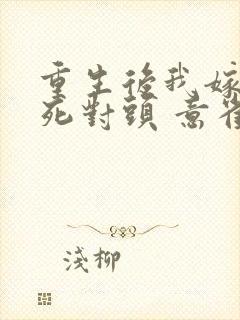 重生後我嫁
死對頭 意崔
淺柳